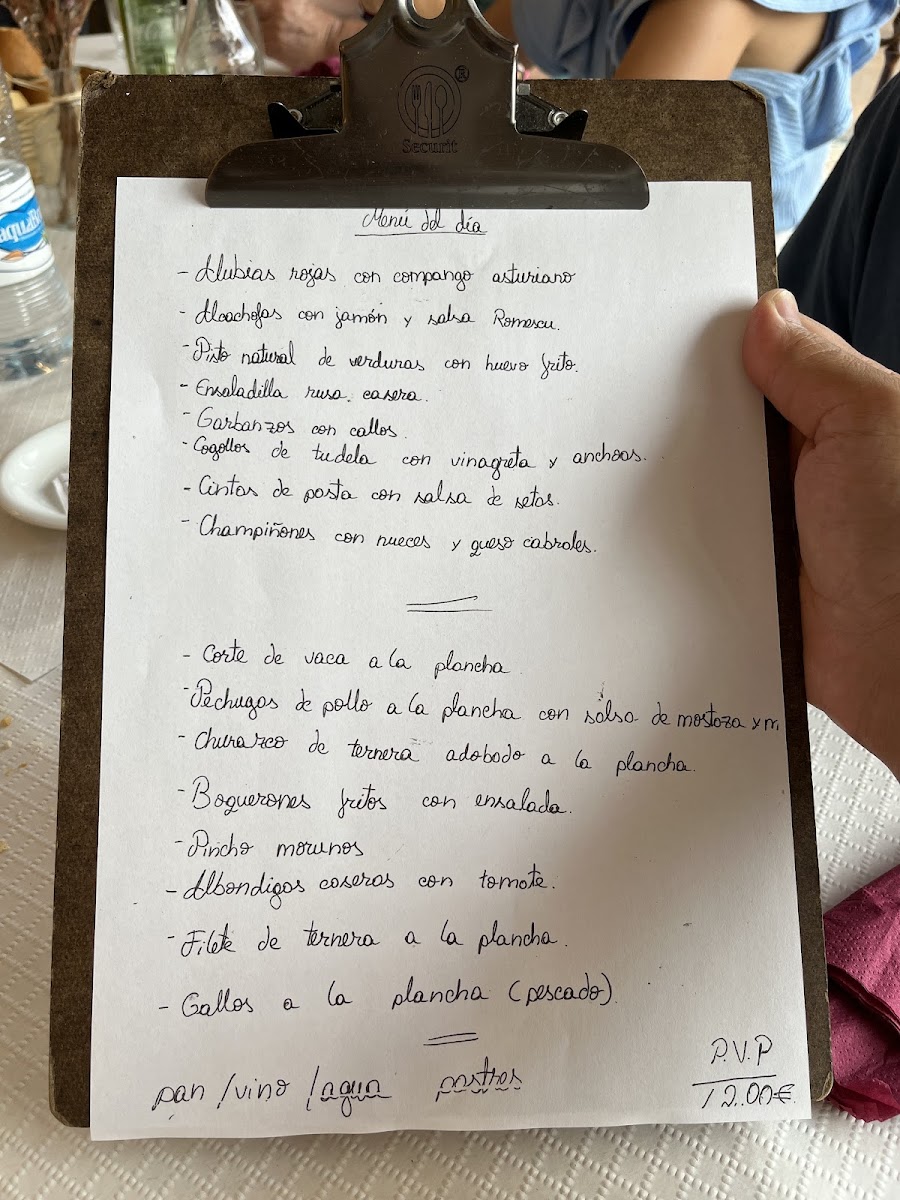 Securit
®
aquaBo
Menú del día
- Alubias rojas con compango asturiano
- Alcachofas con jamón y salsa Romescu.
- Pisto natural de verduras con huevo frito.
- Ensaladilla rusa casera.
- Garbanzos con callos.
- Cogollos de tudela con vinagreta y anchoas.
- Cintas de pasta con salsa de setas.
- Champiñones con nueces y queso cabrales.
- Corte de vaca a la plancha
- Pechugas de pollo a la plancha con salsa de mostaza y m
- Churrasco de ternera adobado a la plancha.
- Boquerones fritos con ensalada.
- Pincho morunos
- Albondigas caseras con tomate.
- Filete de ternera a la plancha.
- Gallos a la plancha (pescado).
pan / vino / agua postres
P.V.P
12.00€.